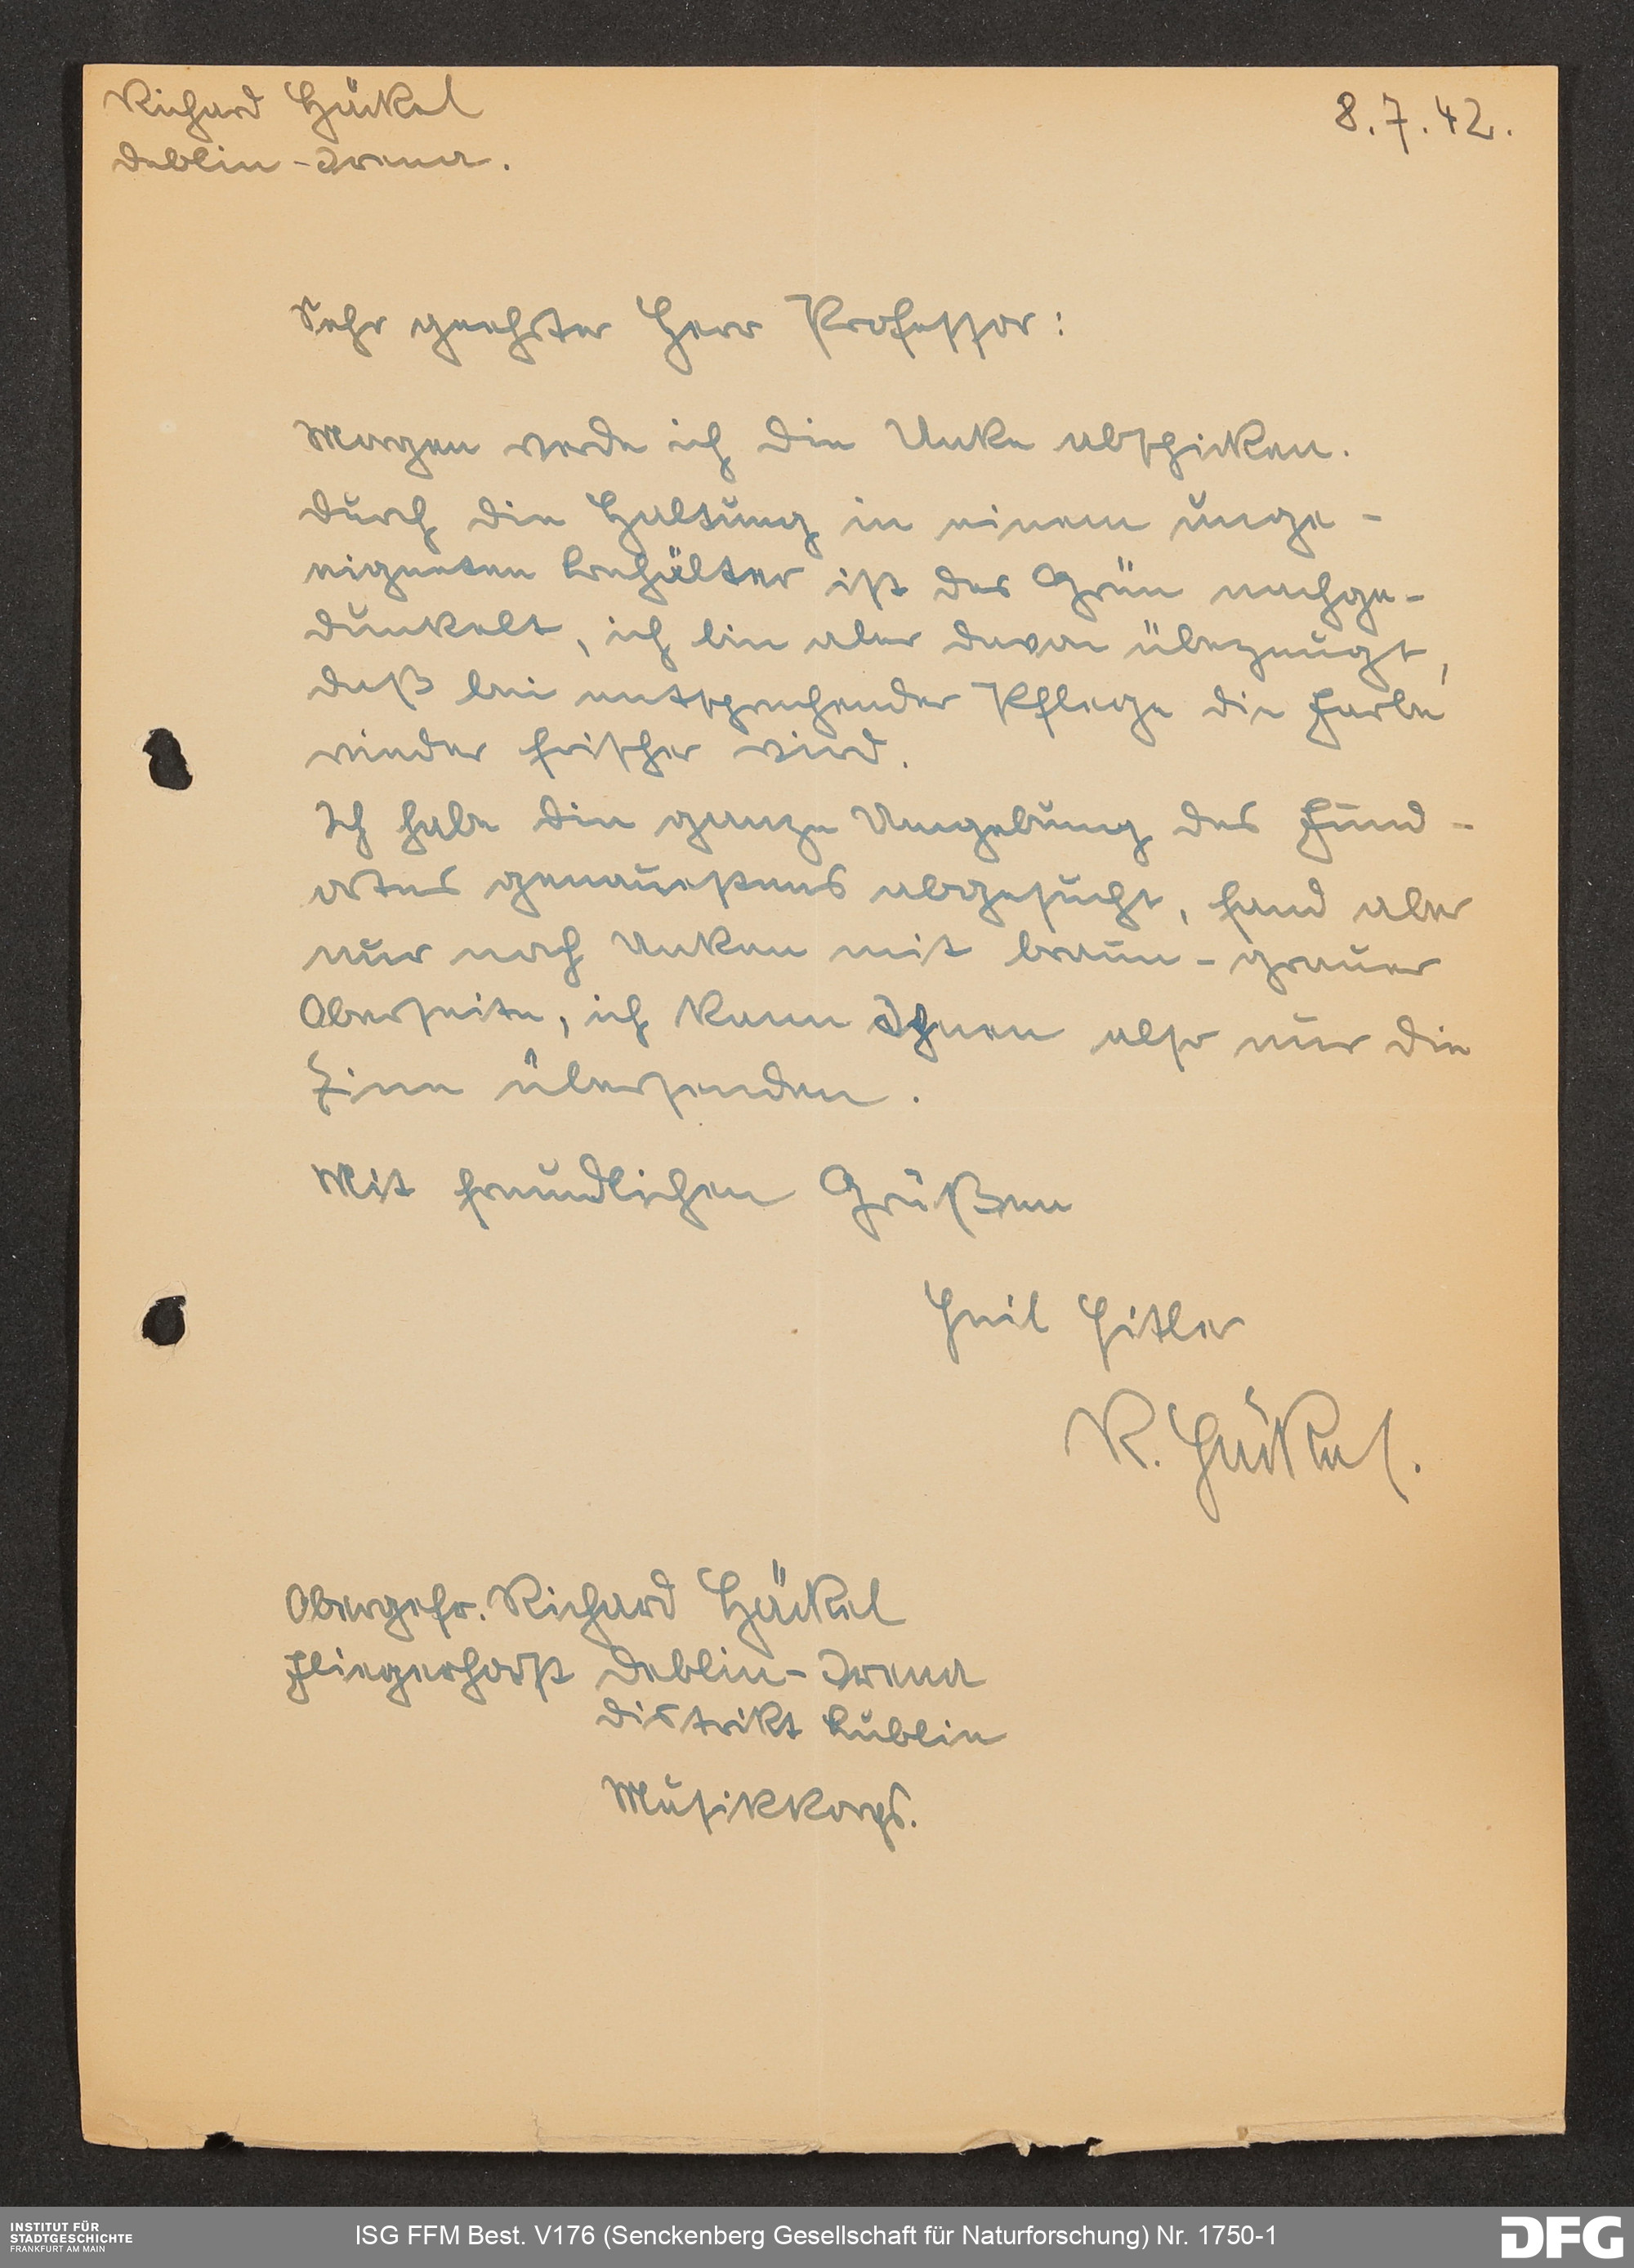 Richard Häckel
Deblin-Irena.
8.7.42.
Sehr geehrter Herr Professor:
Morgen werde ich die Unke abschicken.
Durch die Haltung in einem unge-
eigneten Behälter ist das Grün nachge-
dunkelt, ich bin aber davon überzeugt,
daß bei entsprechender Pflege die Farbe
wieder frischer wird.
Ich habe die ganze Umgebung des Fund-
ortes genauestens abgesucht, fand aber
nur noch Unken mit braun-grauer
Oberseite, ich kann Ihnen also nur die
Eine übersenden.
Mit freundlichen Grüßen
Heil Hitler
R. Häckel.
Obergefr. Richard Häckel
Fliegerhorst Deblin-Irena
Distrikt Lublin
Musikkorps.
INSTITUT FÜR
STADTGESCHICHTE
FRANKFURT AM MAIN
ISG FFM Best. V176 (Senckenberg Gesellschaft für Naturforschung) Nr. 1750-1
DFG